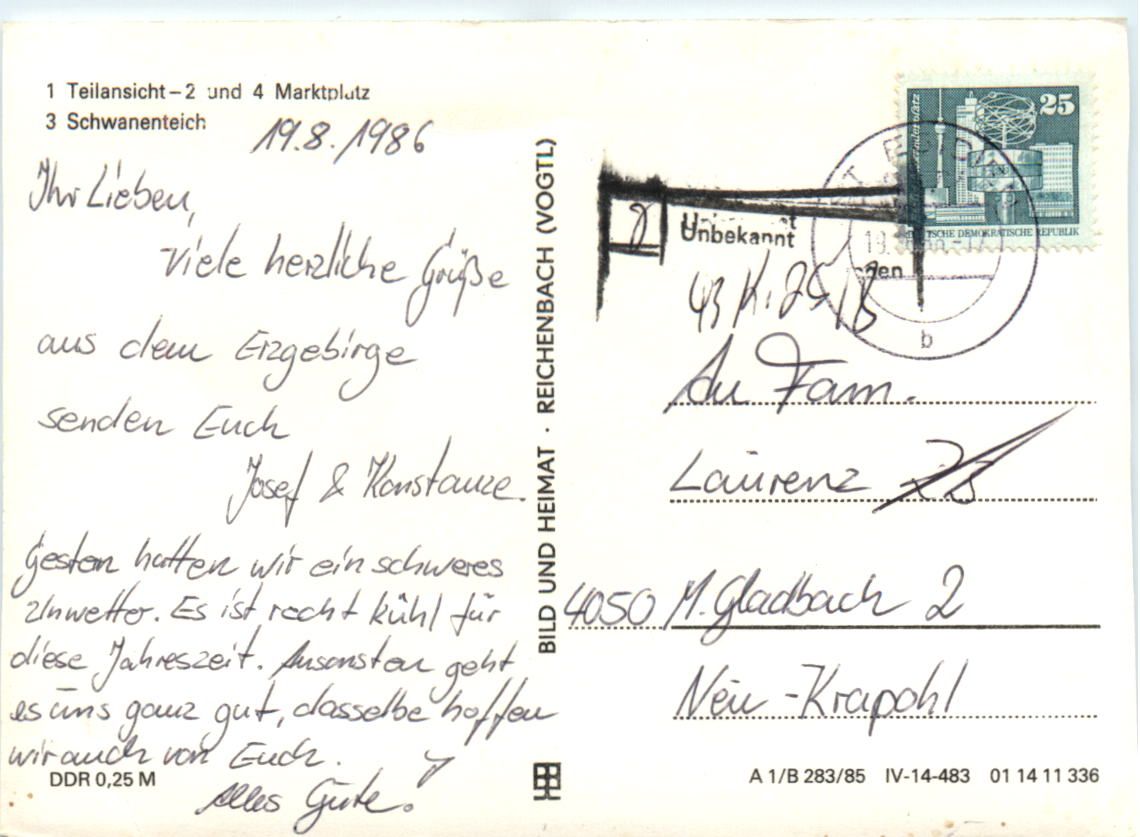 1 Teilansicht – 2 und 4 Marktplatz
3 Schwanenteich
19.8.1986
Ihr Lieben,
Viele herzliche Grüße
aus dem Erzgebirge
senden Euch
Josef & Konstanze.
Gestern hatten wir ein schweres
Unwetter. Es ist recht kühl für
diese Jahreszeit. Ansonsten geht
es uns ganz gut, dasselbe hoffen
wir auch von Euch.
Alles Gute!
DDR 0,25 M
BILD UND HEIMAT · REICHENBACH (VOGTL)
25
DEUTSCHE DEMOKRATISCHE REPUBLIK
Unbekannt
b
An Fam.
Laurenz
4050 M.Gladbach 2
Neu-Krapohl
A 1/B 283/85 IV-14-483 01 14 11 336